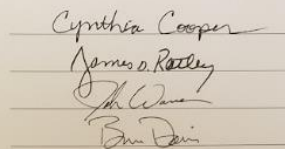 Cynthia Cooper
James D. Ratley
John Warren
Bruce Dorris